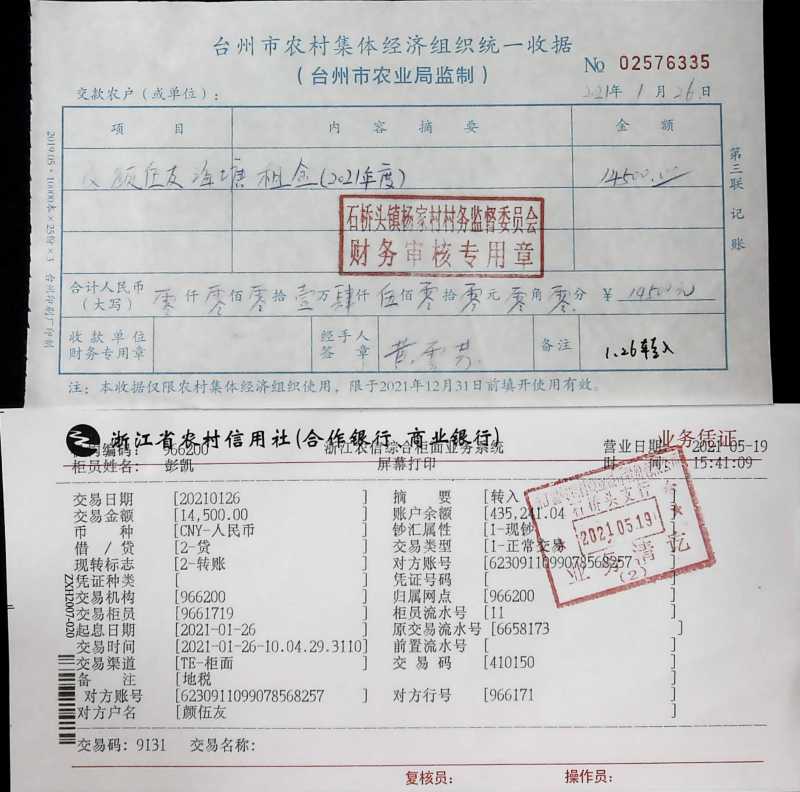 台州市农村集体经济组织统一收据
(台州市农业局监制)
No 02576335
交款农户(或单位):
2021年 1月 26日
项 目 内 容 摘 要 金 额
颜伍友 海塘 租金(2021年度) 14500.00
石桥头镇杨家村村务监督委员会
财务审核专用章
合计人民币
(大写) 零仟零佰零拾壹万肆仟伍佰零拾零元零角零分 ¥ 14500元
收款单位
财务专用章
经手人
签 章
备注 1.26转入
注:本收据仅限农村集体经济组织使用,限于2021年12月31日前填开使用有效。
第三联 记账
浙江省农村信用社(合作银行、商业银行)
业务凭证
机构编码: 966200 浙江农信综合柜面业务系统 营业日期: 2021-05-19
柜员姓名: 彭凯 屏幕打印 时 间: 15:41:09
交易日期 [20210126 ] 摘 要 [转入 ]
交易金额 [14,500.00 ] 账户余额 [435,241.04
币 种 [CNY-人民币 ] 钞汇属性 [1-现钞
借 / 贷 [2-贷 ] 交易类型 [1-正常交易
现转标志 [2-转账 ] 对方账号 [6230911099078568257 ]
凭证种类 [ ] 凭证号码 [ ]
交易机构 [966200 ] 归属网点 [966200 ]
交易柜员 [9661719 ] 柜员流水号 [11 ]
起息日期 [2021-01-26 ] 原交易流水号 [6658173 ]
交易时间 [2021-01-26-10.04.29.3110] 前置流水号 [ ]
交易渠道 [TE-柜面 ] 交 易 码 [410150 ]
备 注 [地税 ]
对方账号 [6230911099078568257 ] 对方行号 [966171 ]
对方户名 [颜伍友 ]
交易码: 9131 交易名称:
复核员: 操作员:
石桥头支行
2021 05 19
业务清讫
(2)
ZXH2007-020